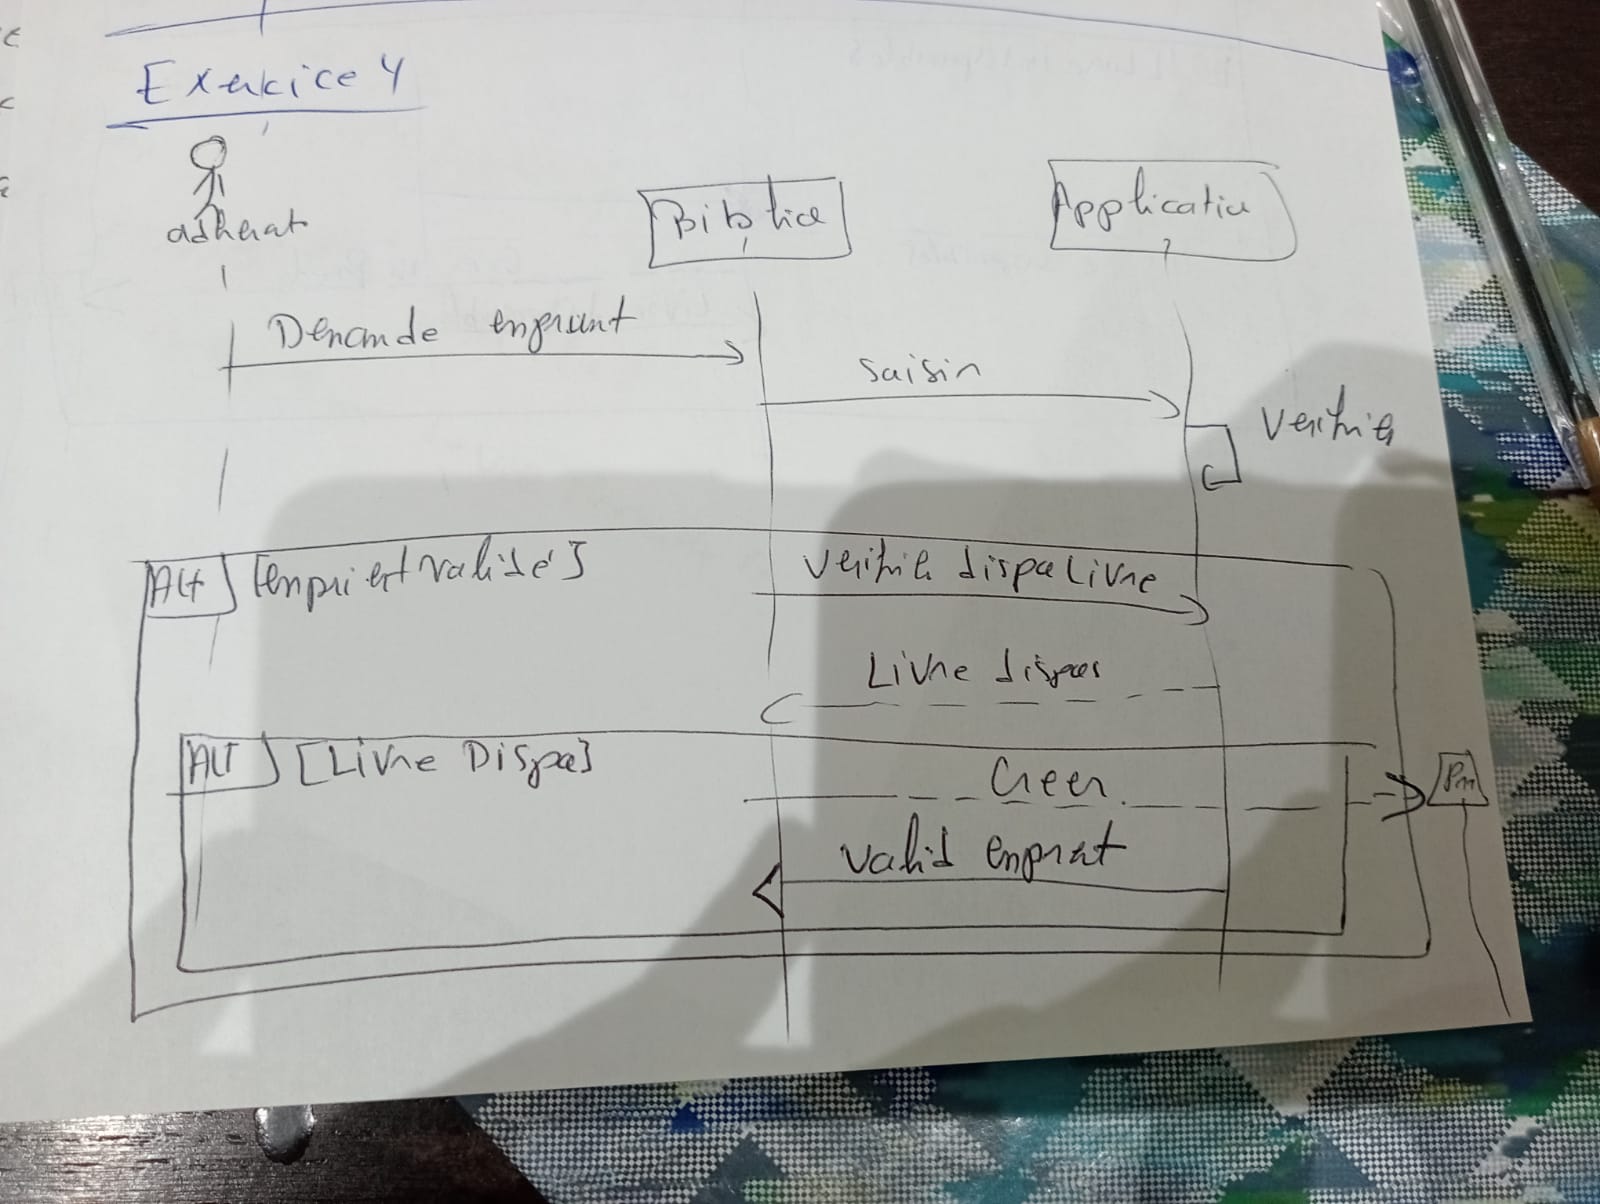 Exercice 4
adherat
Biblice
Application
Demande emprunt
saisir
Verifier
Alt [empr est validé]
Verifie dispo Livre
Livre dispo
ALT [Livre Dispo]
Creer
valid emprut